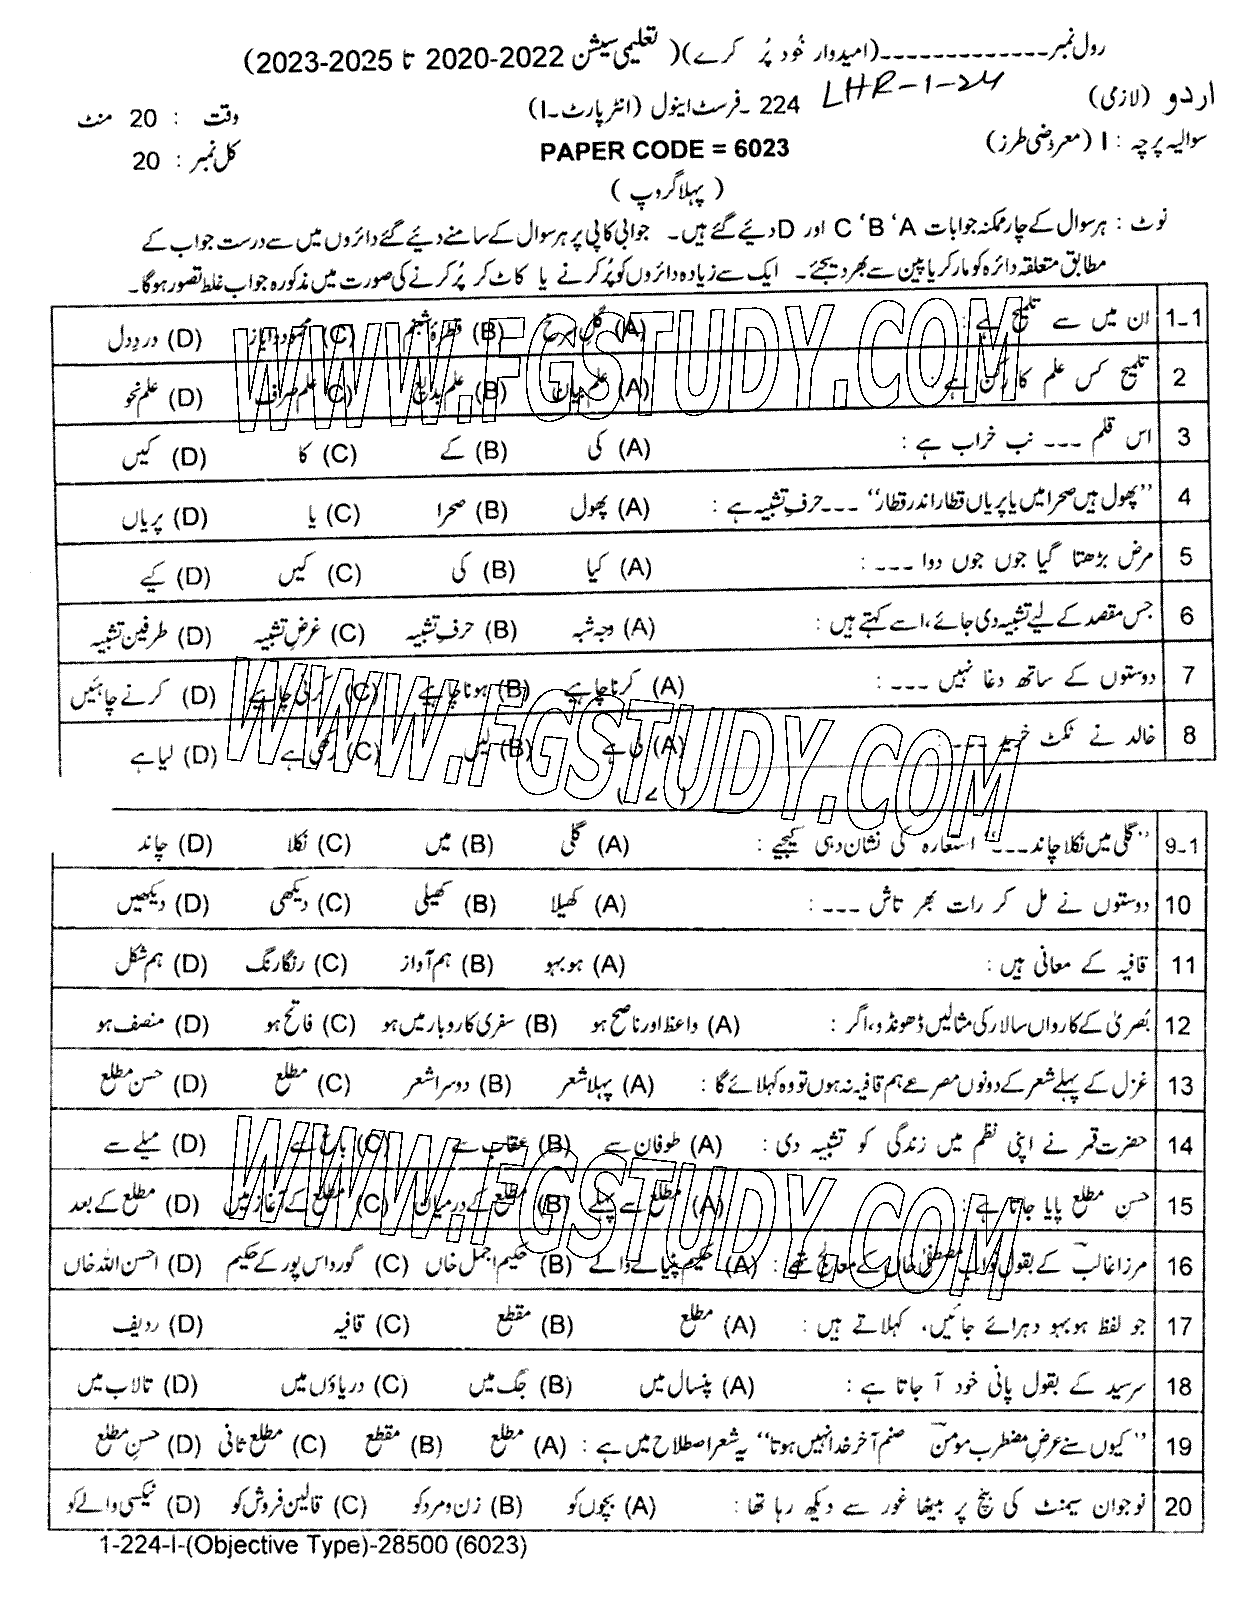 رول نمبر ------------- (امیدوار خُود پُر کرے) ( تعلیمی سیشن 2022-2020 تا 2025-2023)
اردو (لازمی) LHR-1-24 224 - فرسٹ اینول (انٹرپارٹ-I) وقت : 20 منٹ
سوالیہ پرچہ : I (معروضی طرز) PAPER CODE = 6023 کل نمبر : 20
( پہلا گروپ )
نوٹ : ہر سوال کے چار ممکنہ جوابات A ‘ B ‘ C اور D دیئے گئے ہیں۔ جوابی کاپی پر ہر سوال کے سامنے دیئے گئے دائروں میں سے درست جواب کے
مطابق متعلقہ دائرہ کو مارکر یا پین سے بھر دیجئے۔ ایک سے زیادہ دائروں کو پُر کرنے یا کاٹ کر پُر کرنے کی صورت میں مذکورہ جواب غلط تصور ہوگا۔
1-1 ان میں سے تلمیح ہے : (A) گل سرخ (B) قطرۂ شبنم (C) محمود و ایاز (D) دردِ دل
2 تلمیح کس علم کا رکن ہے (A) علم بیان (B) علم بدیع (C) علم صرف (D) علم نحو
3 اس قلم --- نب خراب ہے : (A) کی (B) کے (C) کا (D) کیں
4 ’’پھول ہیں صحرا میں یا پریاں قطار اندر قطار‘‘ --- حرفِ تشبیہ ہے : (A) پھول (B) صحرا (C) یا (D) پریاں
5 مرض بڑھتا گیا جوں جوں دوا --- : (A) کیا (B) کی (C) کیں (D) کیے
6 جس مقصد کے لیے تشبیہ دی جائے، اسے کہتے ہیں : (A) وجہ شبہ (B) حرفِ تشبیہ (C) غرضِ تشبیہ (D) طرفین تشبیہ
7 دوستوں کے ساتھ دغا نہیں --- : (A) کرنا چاہیے (B) ہونا چاہیے (C) کرنی چاہیے (D) کرنے چاہئیں
8 خالد نے ٹکٹ خرید --- (A) لی ہے (B) لیں (C) رکھی ہے (D) لیا ہے
9-1 ’’گلی میں نکلا چاند --- ‘‘ استعارہ کی نشان دہی کیجیے : (A) گلی (B) میں (C) نکلا (D) چاند
10 دوستوں نے مل کر رات بھر تاش --- : (A) کھیلا (B) کھیلی (C) دیکھی (D) دیکھیں
11 قافیہ کے معانی ہیں : (A) ہو بہو (B) ہم آواز (C) رنگا رنگ (D) ہم شکل
12 بُصریٰ کے کارواں سالار کی مثالیں ڈھونڈو، اگر : (A) واعظ اور ناصح ہو (B) سفری کاروبار میں ہو (C) فاتح ہو (D) منصف ہو
13 غزل کے پہلے شعر کے دونوں مصرعے ہم قافیہ نہ ہوں تو وہ کہلائے گا : (A) پہلا شعر (B) دوسرا شعر (C) مطلع (D) حسن مطلع
14 حضرت قمر نے اپنی نظم میں زندگی کو تشبیہ دی : (A) طوفان سے (B) عقاب سے (C) باغ سے (D) میلے سے
15 حسنِ مطلع پایا جاتا ہے : (A) مطلع سے پہلے (B) مطلع کے درمیان (C) مطلع کے آغاز میں (D) مطلع کے بعد
16 مرزا غالب کے بقول نواب مصطفیٰ خاں کے معالج تھے : (A) حکیم پٹیالے والے (B) حکیم اجمل خاں (C) گورداس پور کے حکیم (D) احسن اللہ خاں
17 جو لفظ ہو بہو دہرائے جائیں، کہلاتے ہیں : (A) مطلع (B) مقطع (C) قافیہ (D) ردیف
18 سرسید کے بقول پانی خود آ جاتا ہے : (A) پنسال میں (B) جگ میں (C) دریاؤں میں (D) تالاب میں
19 ’’کیوں سنے عرضِ مضطرب مومن صنم آخر خدا نہیں ہوتا‘‘ یہ شعر اصطلاح میں ہے : (A) مطلع (B) مقطع (C) مطلع ثانی (D) حسنِ مطلع
20 نوجوان سیمنٹ کی بنچ پر بیٹھا غور سے دیکھ رہا تھا : (A) بچوں کو (B) زن و مرد کو (C) قالین فروش کو (D) ٹیکسی والے کو
1-224-I-(Objective Type)-28500 (6023)
WWW.FGSTUDY.COM
WWW.FGSTUDY.COM
WWW.FGSTUDY.COM